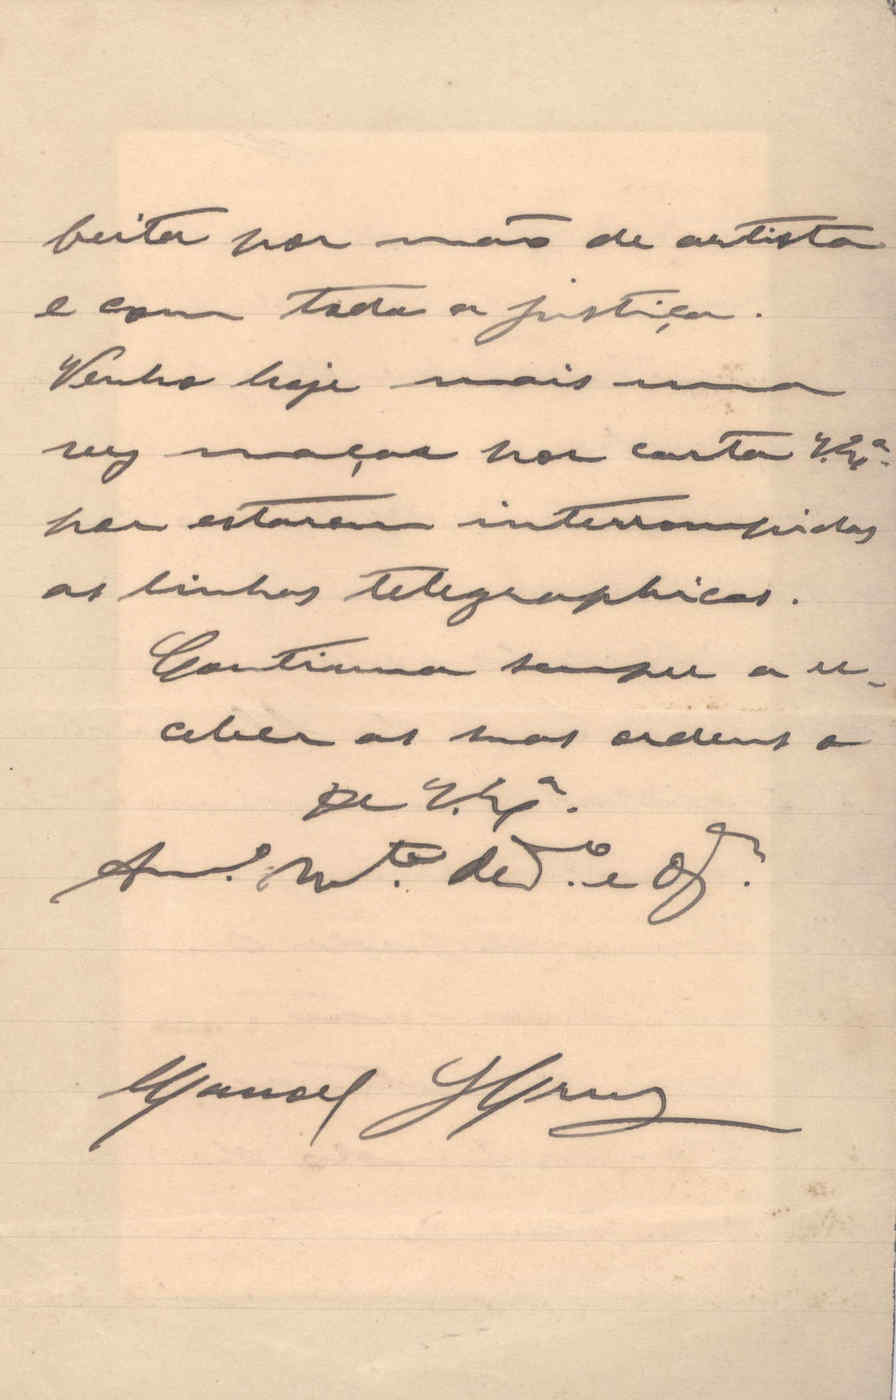 feita por mão de artista
e com toda a justiça.
Venho hoje mais uma
vez maçar por carta V. Exª.
por estarem interrompidas
as linhas telegraphicas.
Continua sempre a re-
ceber as suas ordens o
De V. Exª.
Amº. Mtº. dedº. e
Manoel Cruz